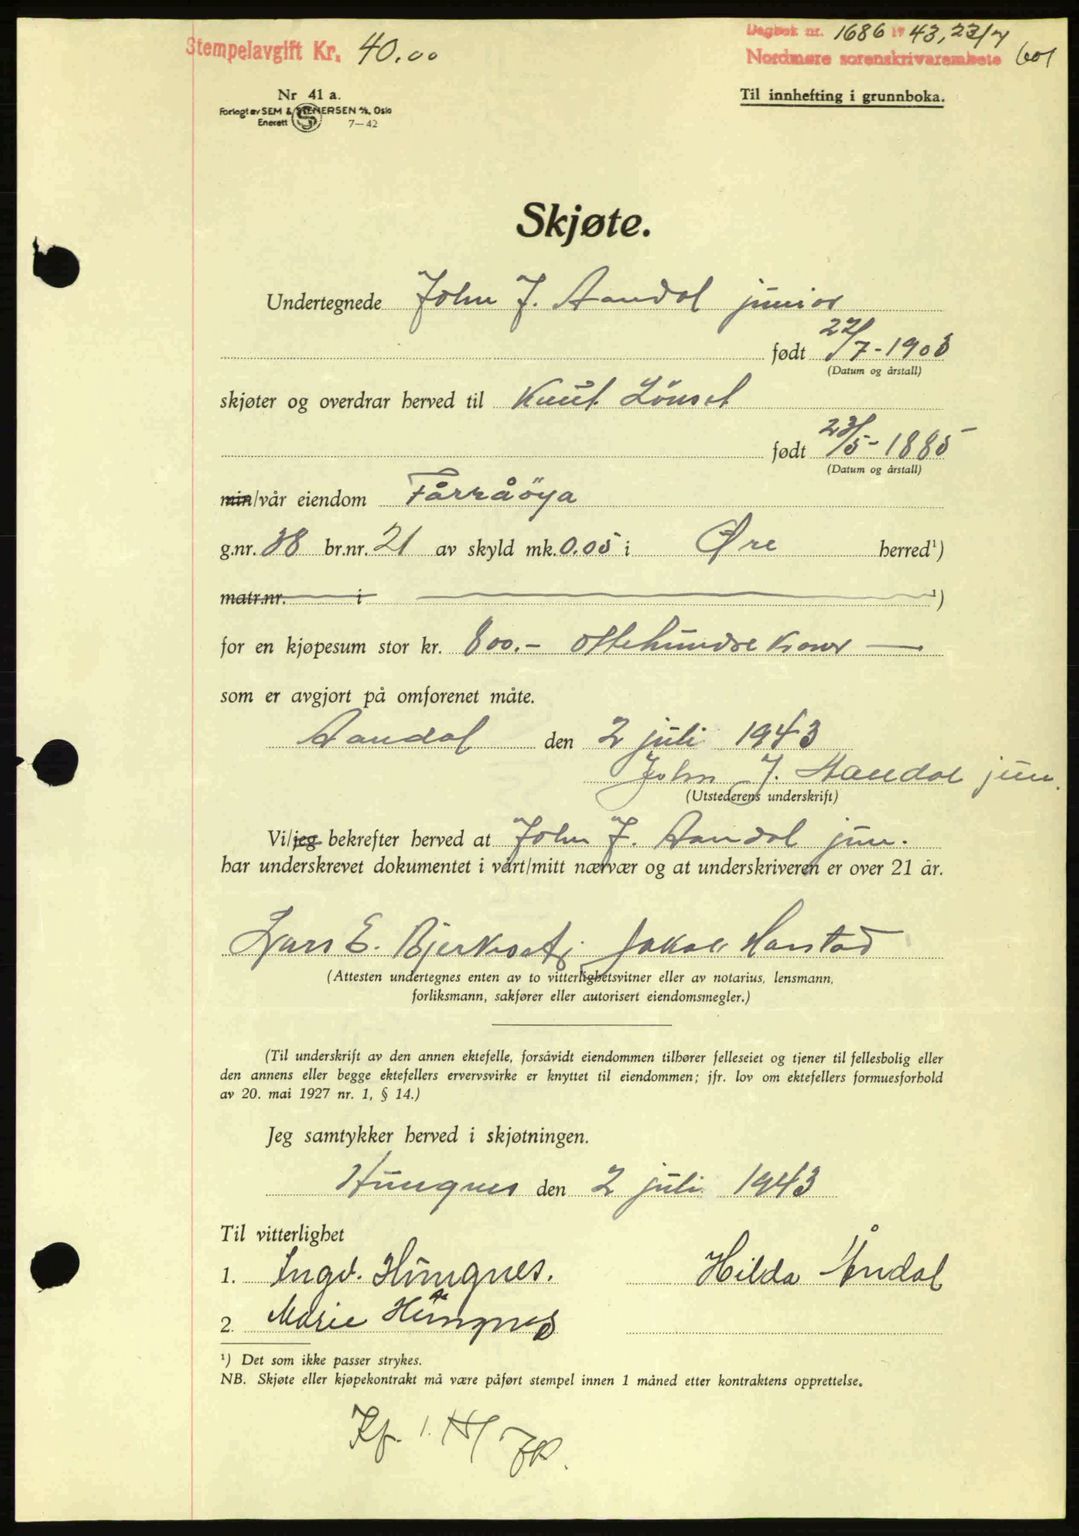 Stempelavgift Kr. 40.00
Dagbok nr. 1686 19 43, 23/7
Nordmøre sorenskriverembete 601
Nr 41 a.
Forlagt av SEM & STENERSEN A/S, Oslo
Enerett 7-42
Til innhefting i grunnboka.
Skjøte.
Undertegnede John J. Aandal junior
født 22/7-1903
(Datum og årstall)
skjøter og overdrar herved til Knut Lönset
født 23/5-1885
(Datum og årstall)
min/vår eiendom Fårråöya
g.nr. 38 br.nr. 21 av skyld mk. 0.05 i Øre herred¹)
matr.nr. i ¹)
for en kjøpesum stor kr. 800.- ottehundre kroner
som er avgjort på omforenet måte.
Aandal den 2 juli 1943
John J. Aandal jun.
(Utstederens underskrift)
Vi/jeg bekrefter herved at John J. Aandal jun.
har underskrevet dokumentet i vårt/mitt nærvær og at underskriveren er over 21 år.
Lars E. Jakob Harstad
(Attesten undertegnes enten av to vitterlighetsvitner eller av notarius, lensmann,
forliksmann, sakfører eller autorisert eiendomsmegler.)
(Til underskrift av den annen ektefelle, forsåvidt eiendommen tilhører felleseiet og tjener til fellesbolig eller
den annens eller begge ektefellers ervervsvirke er knyttet til eiendommen; jfr. lov om ektefellers formuesforhold
av 20. mai 1927 nr. 1, § 14.)
Jeg samtykker herved i skjøtningen.
Hungnes den 2 juli 1943
Til vitterlighet
1. Ingv. Hungnes.
Hilda Åndal
2. Marie Hungnes
¹) Det som ikke passer strykes.
NB. Skjøte eller kjøpekontrakt må være påført stempel innen 1 måned etter kontraktens opprettelse.